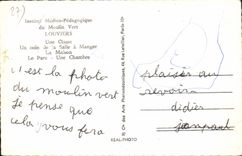 27)
Institut Médico-Pédagogique
du Moulin Vert
LOUVIERS
Une Classe
Un coin de la Salle à Manger
La Maison
Le Parc - Une Chambre
c'est la photo
du moulin vert
Je pense que
cela vous fera
plaisir au
revoir
didier
REAL-PHOTO